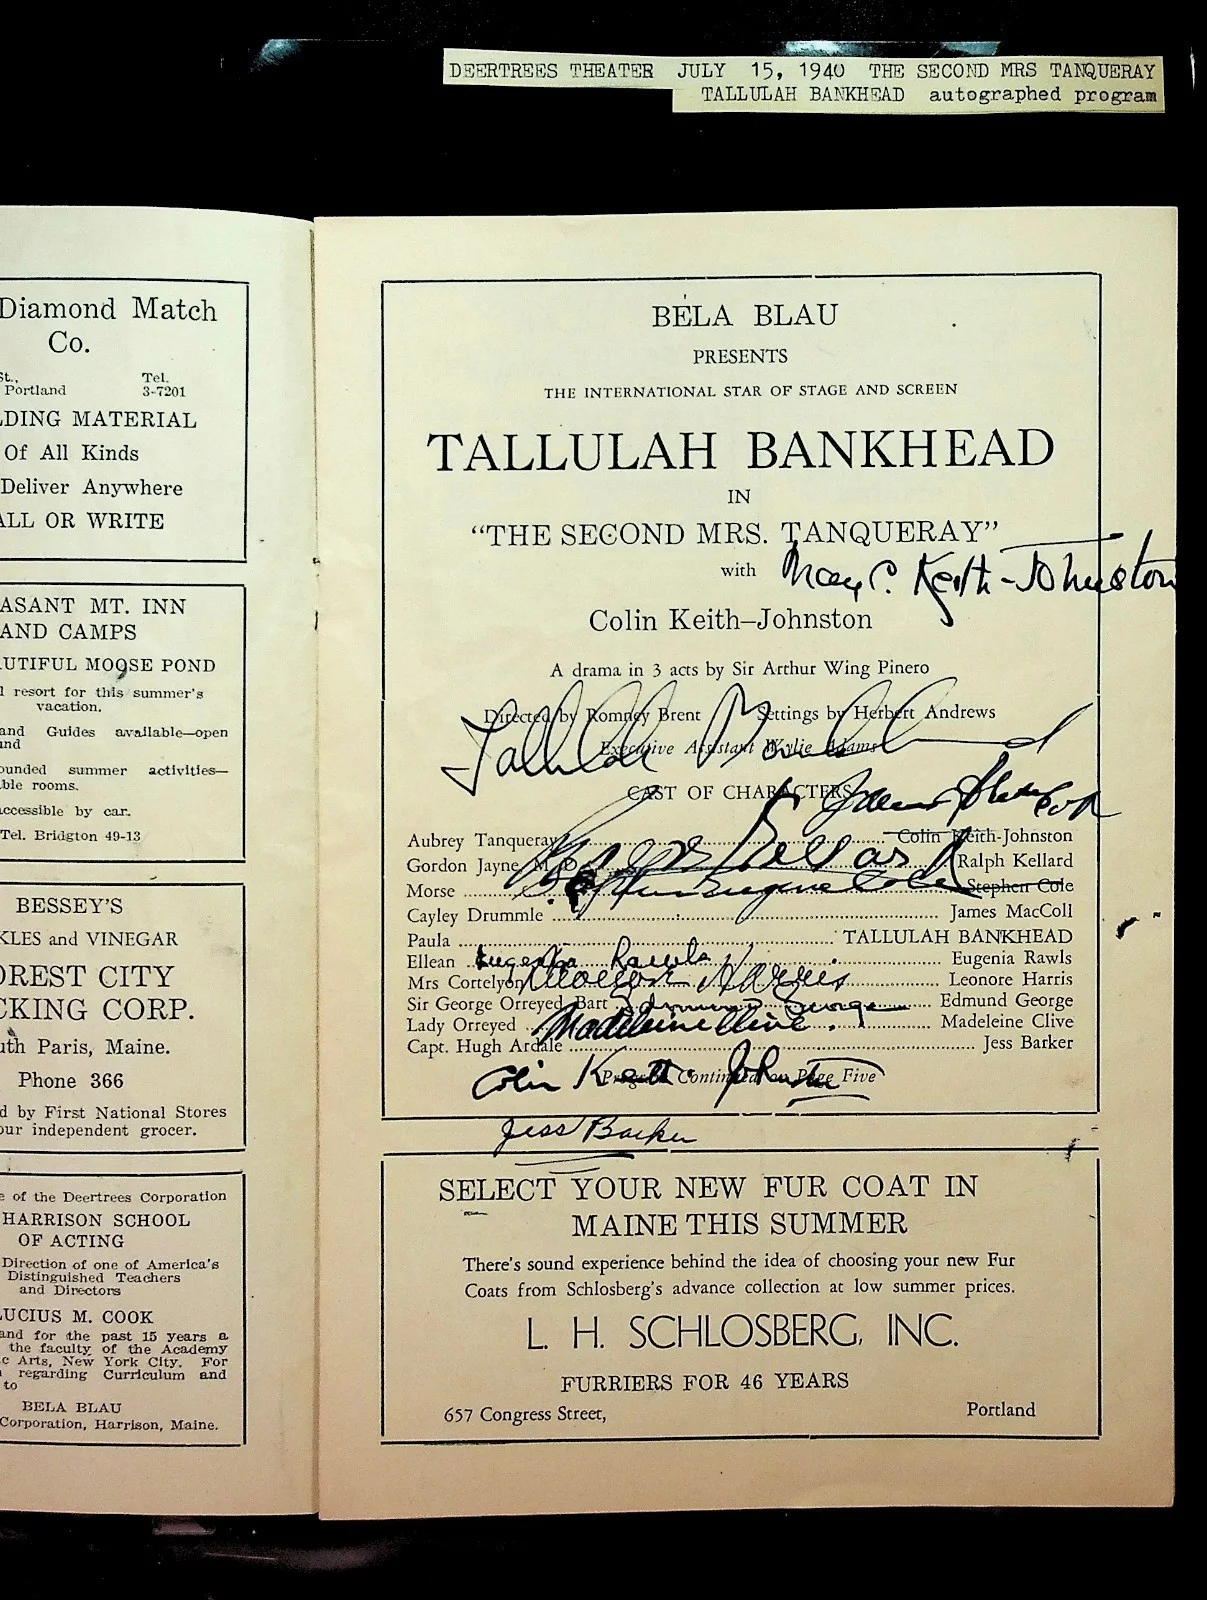 DEERTREES THEATER JULY 15, 1940 THE SECOND MRS TANQUERAY
TALLULAH BANKHEAD autographed program
Diamond Match
Co.
St., Tel.
Portland 3-7201
LDING MATERIAL
Of All Kinds
Deliver Anywhere
ALL OR WRITE
ASANT MT. INN
AND CAMPS
UTIFUL MOOSE POND
l resort for this summer's
vacation.
and Guides available—open
und
ounded summer activities—
ble rooms.
accessible by car.
Tel. Bridgton 49-13
BESSEY'S
KLES and VINEGAR
OREST CITY
CKING CORP.
uth Paris, Maine.
Phone 366
d by First National Stores
our independent grocer.
e of the Deertrees Corporation
HARRISON SCHOOL
OF ACTING
Direction of one of America's
Distinguished Teachers
and Directors
LUCIUS M. COOK
and for the past 15 years a
the faculty of the Academy
c Arts, New York City. For
regarding Curriculum and
to
BELA BLAU
Corporation, Harrison, Maine.
BÉLA BLAU
PRESENTS
THE INTERNATIONAL STAR OF STAGE AND SCREEN
TALLULAH BANKHEAD
IN
“THE SECOND MRS. TANQUERAY”
with
Keith-Johnston
Colin Keith–Johnston
A drama in 3 acts by Sir Arthur Wing Pinero
Directed by Romney Brent Settings by Herbert Andrews
Tallulah Bankhead
Executive Assistant Wylie Adams
CAST OF CHARACTERS
Aubrey Tanqueray Colin Keith-Johnston
Gordon Jayne, M. D. Ralph Kellard
Morse Stephen Cole
Cayley Drummle James MacColl
Paula TALLULAH BANKHEAD
Ellean Eugenia Rawls Eugenia Rawls
Mrs Cortelyon Leonore Harris
Sir George Orreyed Bart Edmund George Edmund George
Lady Orreyed Madeleine Clive Madeleine Clive
Capt. Hugh Ardale Jess Barker
Program Continued on Page Five
Colin Keith-Johnston
Jess Barker
SELECT YOUR NEW FUR COAT IN
MAINE THIS SUMMER
There's sound experience behind the idea of choosing your new Fur
Coats from Schlosberg's advance collection at low summer prices.
L. H. SCHLOSBERG, INC.
FURRIERS FOR 46 YEARS
657 Congress Street, Portland